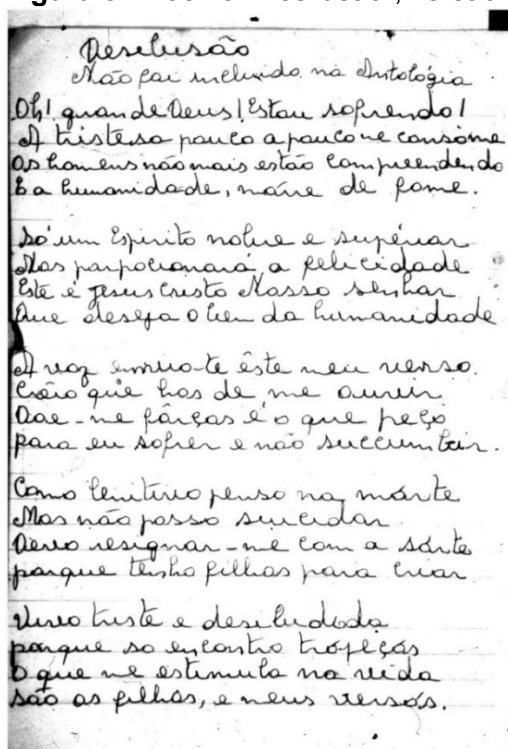 Desilusão
Não foi incluido na Antológia
Oh! grande Deus! Estou sofrendo!
A tristesa pouco a pouco me consòme
Os homens não mais estão compreendendo
E a humanidade, morre de fome.
Só um Espirito nobre e supériar
Nos porporcionará, a felicidade
Este é Jesus Cristo Nosso senhor
Que deseja o bem da humanidade
A voz envio-te êste meu verso.
Creio que has de me ouvir
Dae-me fôrças é o que peço
para eu sofrer e não succumbir.
Como lenitivo penso na mórte
Mas não posso suicidar
Devo resignar-me com a sórte
porque tenho filhos para criar
Vivo triste e desiludida
porque so encontro tropeços
O que me estimula na vida
são os filhos, e meus versos.